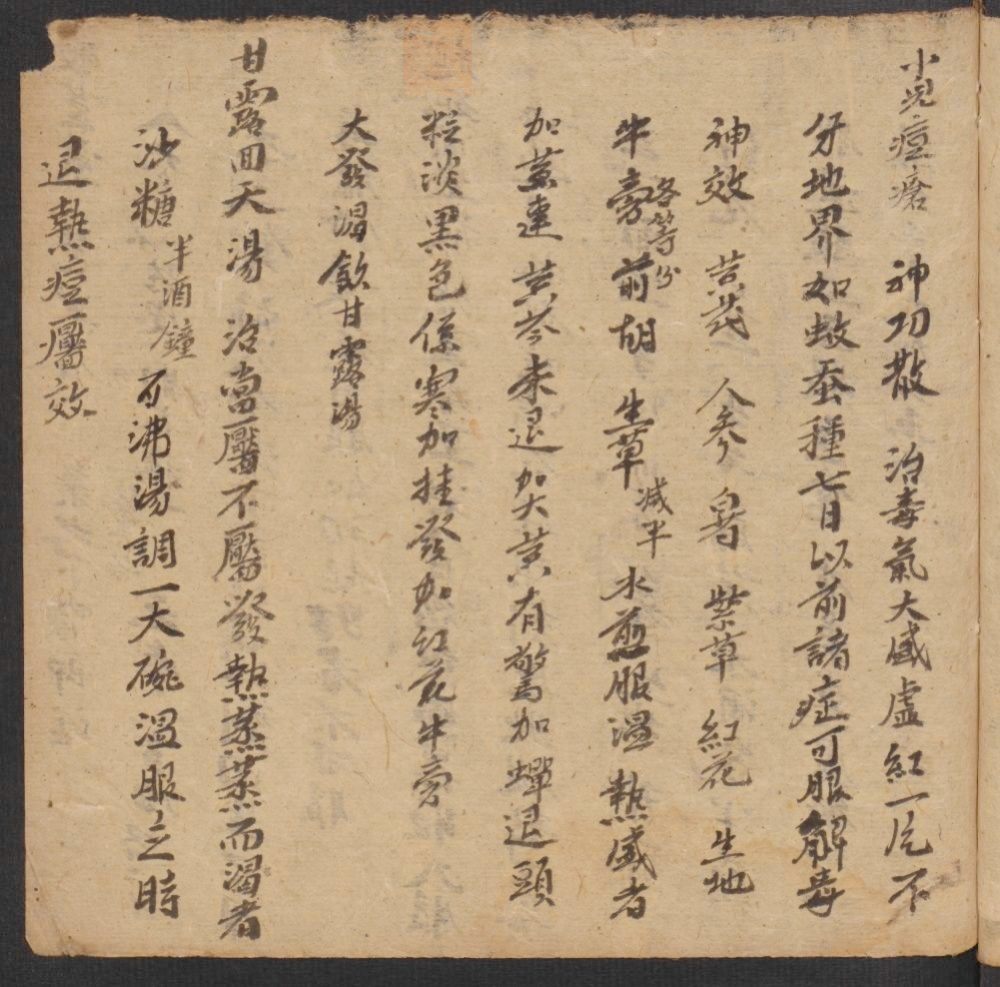 小児痘瘡 神功散 治毒氣大盛虛紅一片不
分地界如蚊蚤種七日以前諸症可服解毒
神效 黄芪 人參 白芍 紫草 紅花 生地
牛旁各等分 前胡 生草減半 水煎服温 熱盛者
加黄連 黄芩未退加大黄有驚加蟬退頭
粒淡黑色係寒加桂發加紅花牛旁
大發渴飲甘露湯
甘露回天湯 治當靨不靨發熱蒸蒸而渴者
沙糖半酒鐘 百沸湯調一大碗温服之時
退熱痘靨效